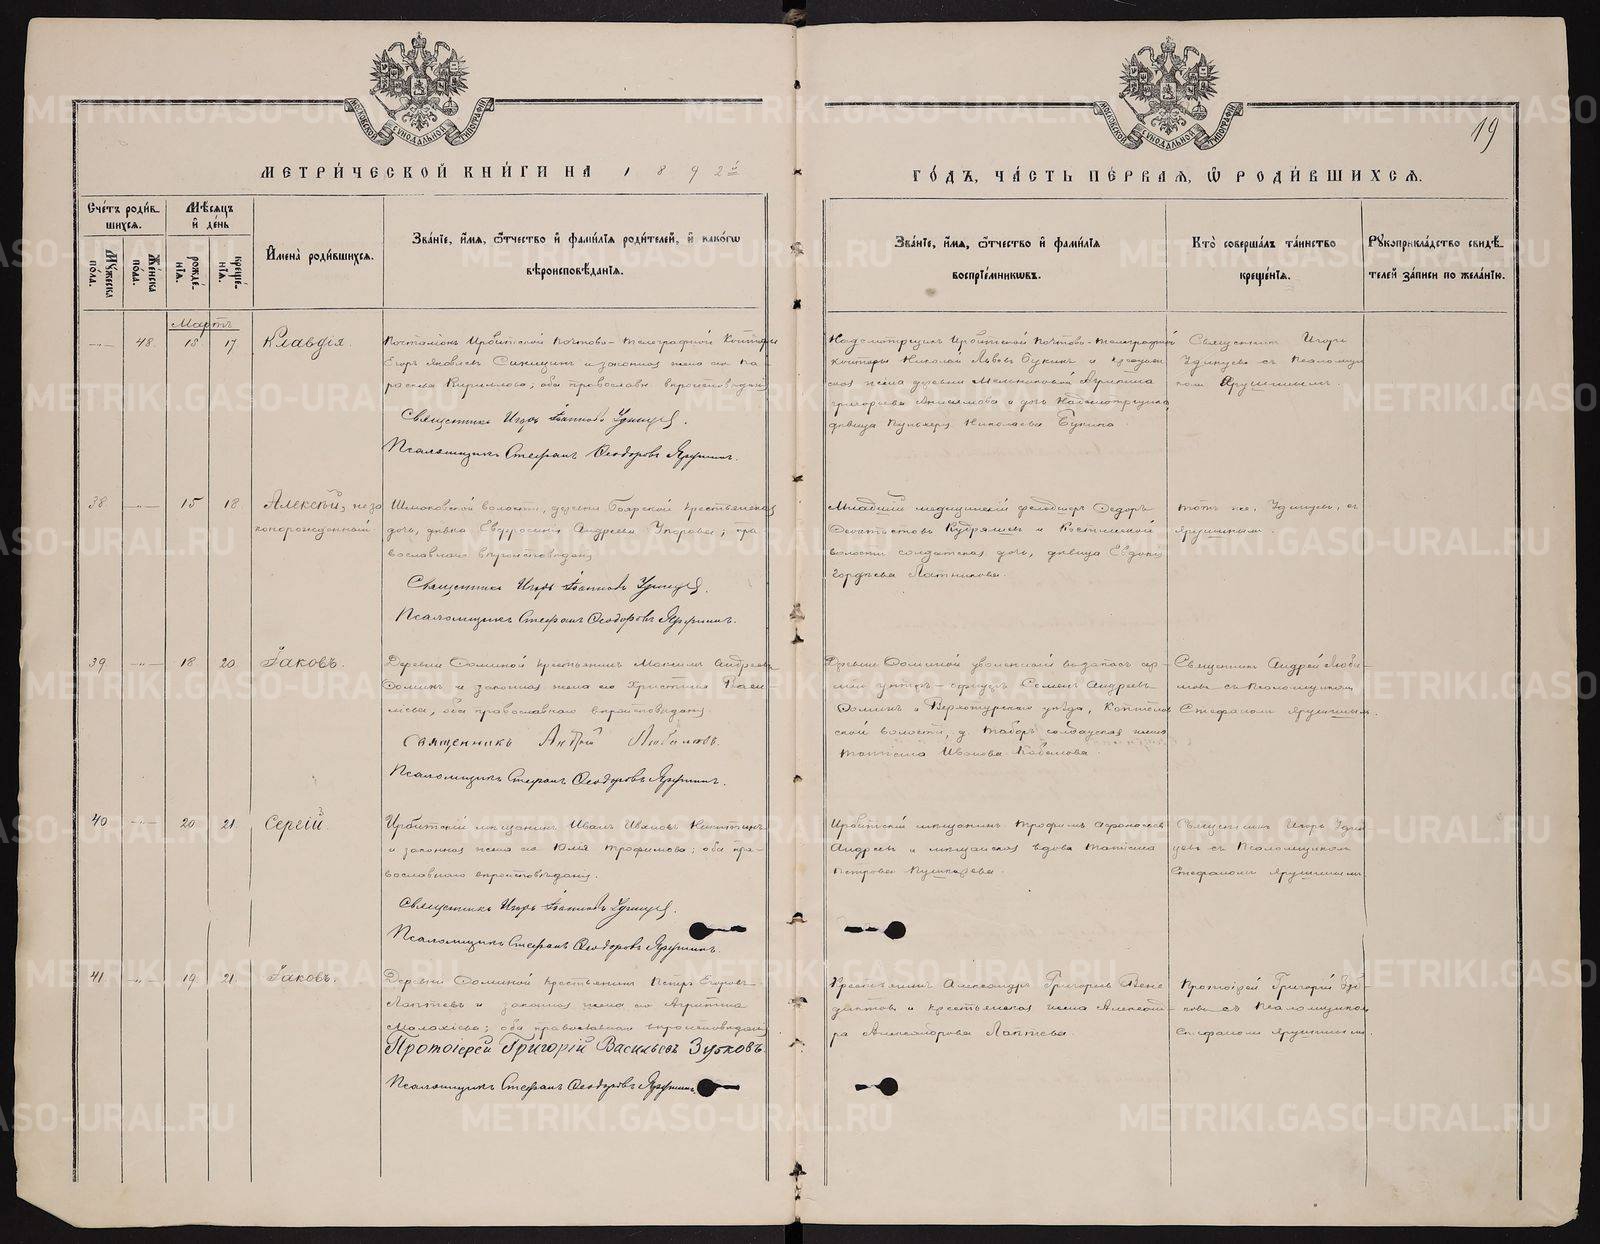 МЕТРИ́ЧЕСКОЙ КНИ́ГИ НА 1892й
ГО́ДЪ, ЧА́СТЬ ПЕ́РВАЯ, Ѡ РОДИ́ВШИХСЯ.
19
МОСКОВСКОЙ СѴНОДАЛЬНОЙ ТИПОГРАФІИ
МОСКОВСКОЙ СѴНОДАЛЬНОЙ ТИПОГРАФІИ
Сче́тъ роди́в-
шихся.
Мꙋ́жеска по́ла.
Же́нска по́ла.
Мѣ́сяцъ
и҆ де́нь
рожде́-
нїѧ.
креще́-
нїѧ.
И҆мена̀ роди́вшихсѧ.
Зва́нїе, и҆́мѧ, ѻ҆́тчество и҆ фами́лїѧ роди́телей, и҆ како́гѡ
вѣроисповѣ́данїѧ.
Зва́нїе, и҆́мѧ, ѻ҆́тчество и҆ фами́лїѧ
воспрїе́мникѡвъ.
Кто̀ соверша́лъ та́инство
креще́нїѧ.
Рꙋкоприкла́дство свидѣ́-
телей за́писи по жела́нїю.
Мартъ
48. 15 17 Клавдія.
Почталіонъ Ирбитской Почтово-телеграфной Конторы
Егоръ Яковлевъ и законная жена его Па-
раскева Кириллова; оба православн. вѣроисповѣданія
Священникъ Игорь Іоанновъ Удинцевъ.
Псаломщикъ Стефанъ Ѳеодоровъ Ярушинъ.
Надсмотрщикъ Ирбитской Почтово-телеграфной
Конторы Николай Львовъ Букинъ и
жена деревни Мельниковой
Григорьева и дочь Надсмотрщика,
дѣвица Николаева Букина.
Священникъ Игорь
Удинцевъ съ Псаломщи-
комъ Ярушинымъ.
38 15 18 Алексѣй, неза
коннорожденный
волости, деревни Боярской крестьянская
дочь, дѣвка Евдросинія Андреева; пра
вославнаго вѣроисповѣданія
Священникъ Игорь Іоанновъ Удинцевъ.
Псаломщикъ Стефанъ Ѳеодоровъ Ярушинъ.
Младшій медицинскій фельдшеръ Ѳедоръ
Ѳеоктистовъ Кудряшевъ и
волости солдатская дочь, дѣвица Евдокія
Гордѣева Латникова.
тотъ же, Удинцевъ, съ
Ярушинымъ.
39 18 20 Іаковъ.
Деревни Ѳоминой крестьянинъ Максимъ Андреевъ
Ѳоминъ и законная жена его Христина
оба православнаго вѣроисповѣданія.
Священникъ Андрей Любимовъ.
Псаломщикъ Стефанъ Ѳеодоровъ Ярушинъ.
Деревни Ѳоминой уволенный въ запасъ ар-
міи унтеръ-офицеръ Семенъ Андреевъ
Ѳоминъ и Верхотурскаго уѣзда,
ской волости, д. солдатская жена
Татіана Иванова
Священникъ Андрей Люби-
мовъ съ Псаломщикомъ
Стефаномъ Ярушинымъ.
40 20 21 Сергій.
Ирбитскій мѣщанинъ Иванъ Ивановъ Никитинъ
и законная жена его Юлія Трофимова; оба пра-
вославнаго вѣроисповѣданія.
Священникъ Игорь Іоанновъ Удинцевъ.
Псаломщикъ Стефанъ Ѳеодоровъ Ярушинъ.
Ирбитскій мѣщанинъ Трофимъ Афонасьевъ
Андреевъ и мѣщанская вдова Татіана
Петрова
Священникъ Игорь Удин
цевъ съ Псаломщикомъ
Стефаномъ Ярушинымъ
41 19 21 Іаковъ.
Деревни Ѳоминой крестьянинъ Петръ Егоровъ
Лаптевъ и законная жена его Агриппина
Малахіева; оба православнаго вѣроисповѣданія
Протоіерей Григорій Васильевъ Зубковъ.
Псаломщикъ Стефанъ Ѳеодоровъ Ярушинъ
Крестьянинъ Александръ Григорьевъ Вене
диктовъ и крестьянская жена Александ-
ра Александрова Лаптева.
Протоіерей Григорій Зуб
ковъ съ Псаломщикомъ
Стефаномъ Ярушинымъ.
METRIKI.GASO-URAL.RU